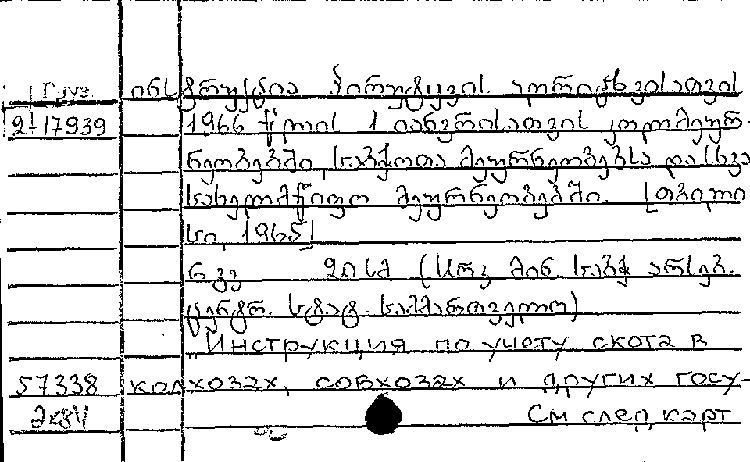 Груз. ინსტრუქცია პირუტყვის აღრიცხვისათვის
2-17939 1966 წლის 1 იანვრისათვის კოლმეურ-
ნეობებში, საბჭოთა მეურნეობებსა და სხვა
სახელმწიფო მეურნეობებში. [თბილი
სი, 1965]
6 გვ 20 სმ (სსრკ მინ. საბჭ. არსებ.
ცენტრ. სტატ. სამმართველო)
"Инструкция по учету скота в
57338 колхозах, совхозах и других госу-
См след. карт